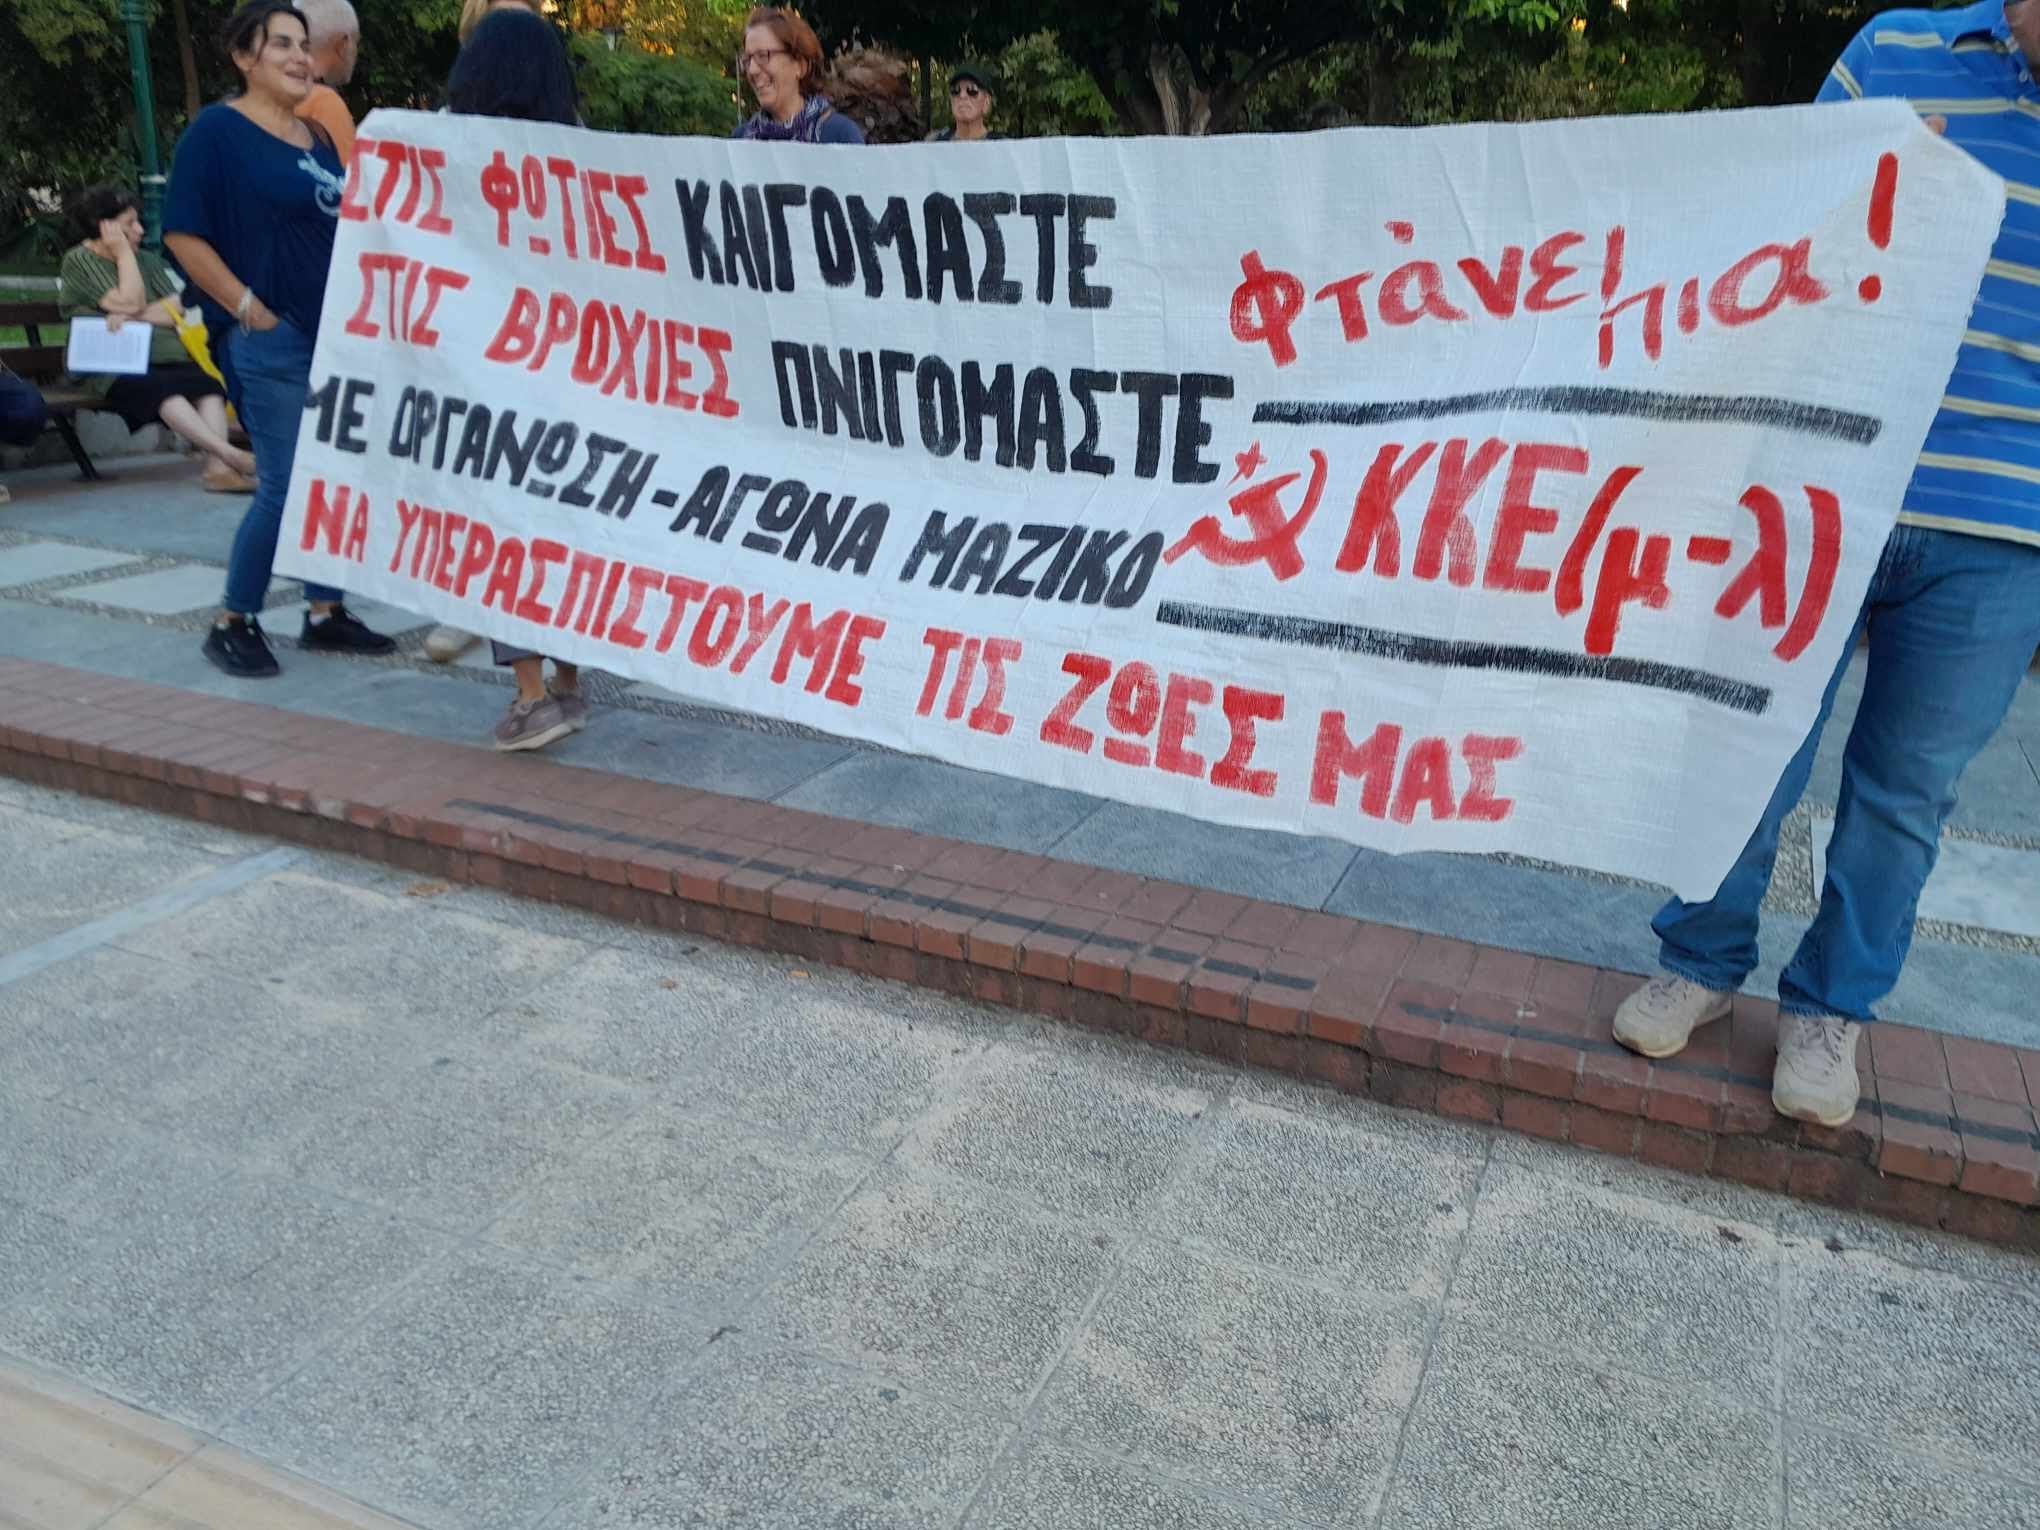 ΣΤΙΣ ΦΩΤΙΕΣ ΚΑΙΓΟΜΑΣΤΕ
ΣΤΙΣ ΒΡΟΧΙΕΣ ΠΝΙΓΟΜΑΣΤΕ
ΜΕ ΟΡΓΑΝΩΣΗ-ΑΓΩΝΑ ΜΑΖΙΚΟ
ΝΑ ΥΠΕΡΑΣΠΙΣΤΟΥΜΕ ΤΙΣ ΖΩΕΣ ΜΑΣ
Φτάνει πια!
ΚΚΕ(μ-λ)